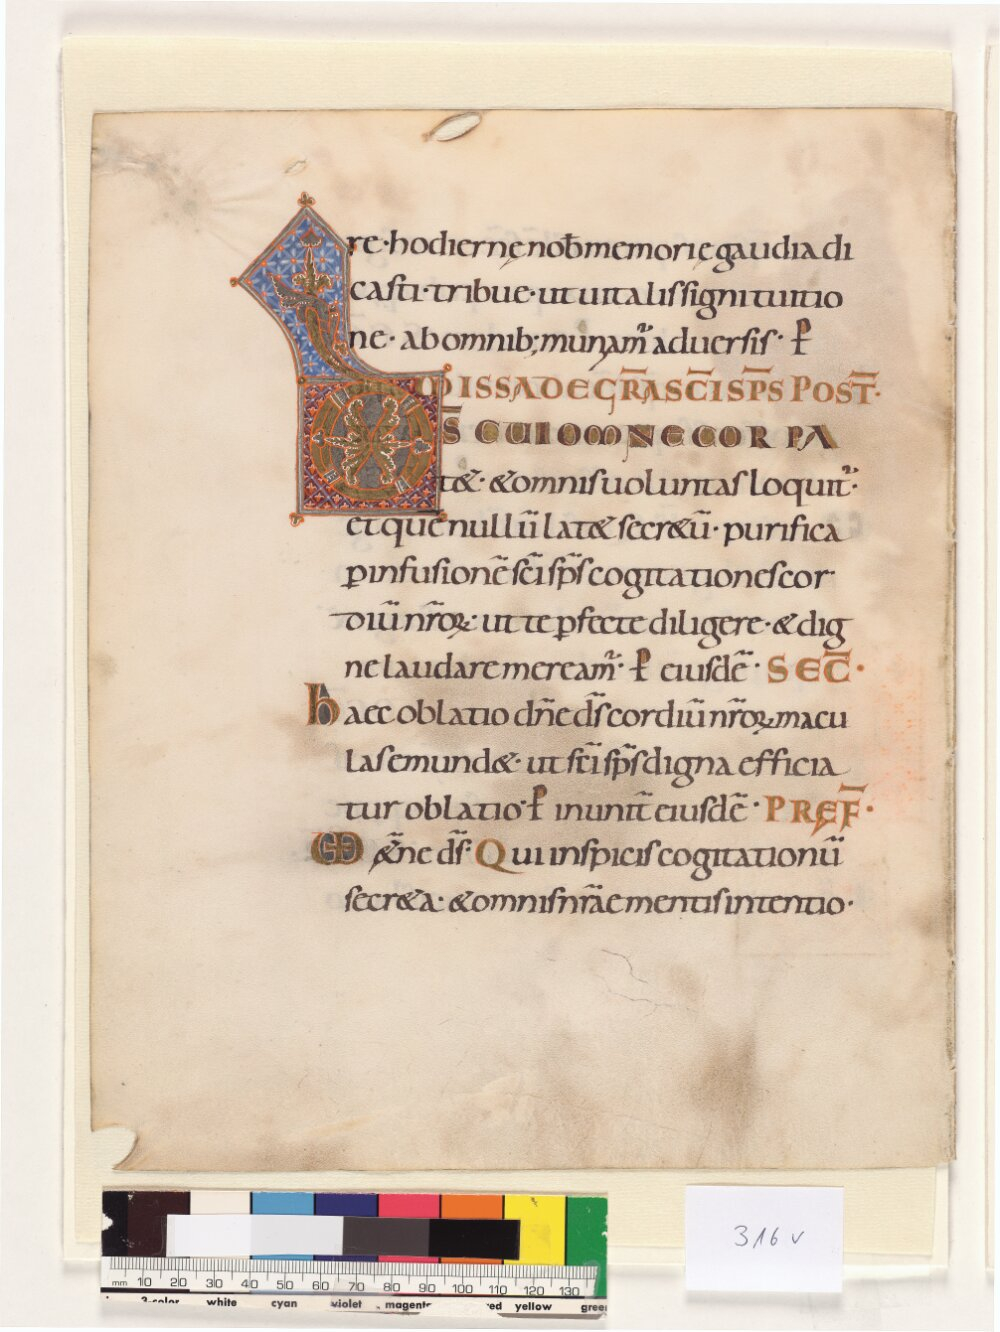 re·hodiernę nob̅ memorię gaudia di
casti·tribue·ut uitalis signi tuitio
ne·ab omnib; munam̅ aduersis· p̅
MISSA DE GR̅A SC̅I SP̅S POST̅·
D̅S CUI OMNE COR PA
t&·&omnis uoluntas loquit̅·
et que nullu̅ lat& secr&u̅·purifica
p̱ infusione̅ sc̅i sp̅s cogitationes cor
diu̅ nr̅oꝝ·ut te p̱fecte diligere·&dig
ne laudare meream̅·p̅ eiusde̅·SEC̅·
haec oblatio dn̅e d̅s cordiu̅ nr̅oꝝ macu
las emund&·ut sc̅i sp̅s digna efficia
tur oblatio·p̅ in unit̅ eiusde̅·PREF̅·
&n̅e d̅s·Qui inspicis cogitationu̅
secr&a·&omnis nr̅ae mentis intentio·
316 v
mm 10 20 30 40 50 60 70 80 90 100 110 120 130
3-color white cyan violet magenta red yellow green